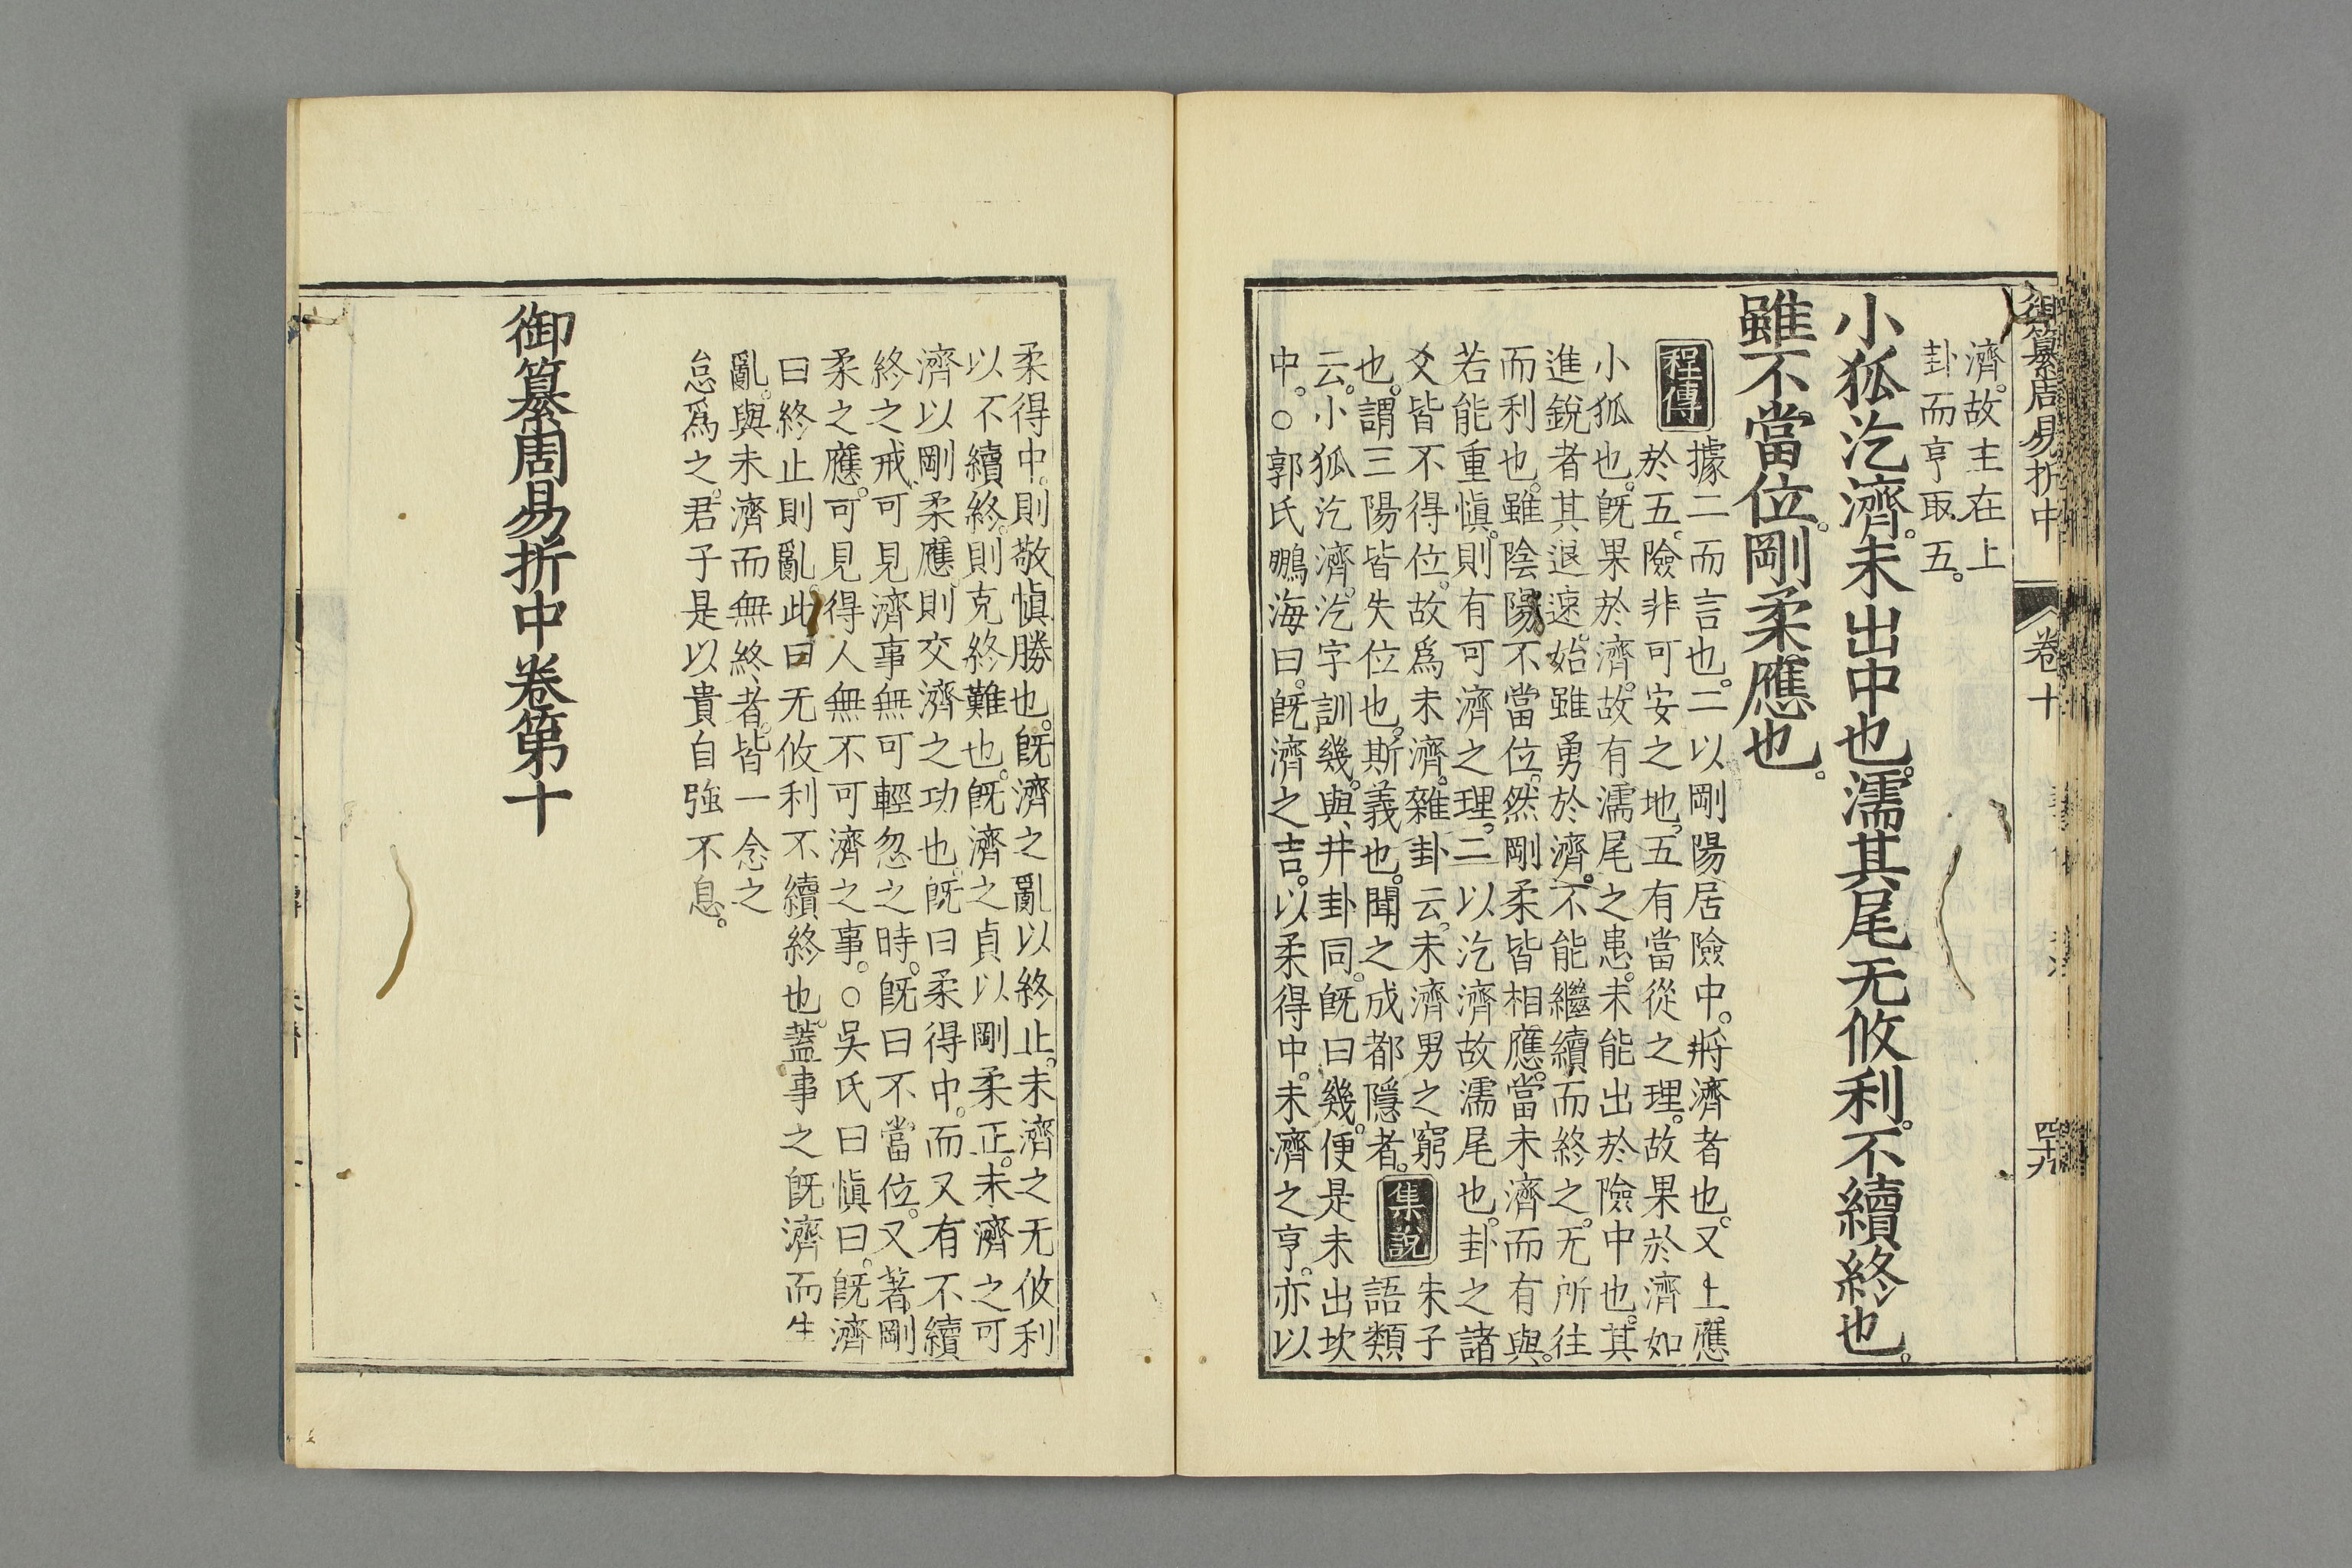 御纂周易折中
卷十
濟。故主在上
卦而亨取五。
小狐汔濟。未出中也。濡其尾无攸利。不續終也。
雖不當位。剛柔應也。
程傳
據二而言也。二以剛陽居險中。將濟者也。又上應
於五。險非可安之地。五有當從之理。故果於濟如
小狐也。旣果於濟。故有濡尾之患。未能出於險中也。其
進銳者其退速。始雖勇於濟。不能繼續而終之。无所往
而利也。雖陰陽不當位。然剛柔皆相應。當未濟而有與。
若能重愼。則有可濟之理。二以汔濟故濡尾也。卦之諸
爻皆不得位。故爲未濟。雜卦云。未濟男之窮
也。謂三陽皆失位也。斯義也。聞之成都隱者。
集說
朱子
語類
云。小狐汔濟。汔字訓幾。與井卦同。旣曰幾。便是未出坎
中。○郭氏鵬海曰。旣濟之吉。以柔得中。未濟之亨。亦以
柔得中。則敬愼勝也。旣濟之亂以終止。未濟之无攸利
以不續終。則克終難也。旣濟之貞以剛柔正。未濟之可
濟以剛柔應。則交濟之功也。旣曰柔得中。而又有不續
終之戒。可見濟事無可輕忽之時。旣曰不當位。又著剛
柔之應。可見得人無不可濟之事。○吳氏曰愼曰。旣濟
曰終止則亂。此曰无攸利不續終也。蓋事之旣濟而生
亂。與未濟而無終者。皆一念之
怠爲之。君子是以貴自強不息。
御纂周易折中卷第十